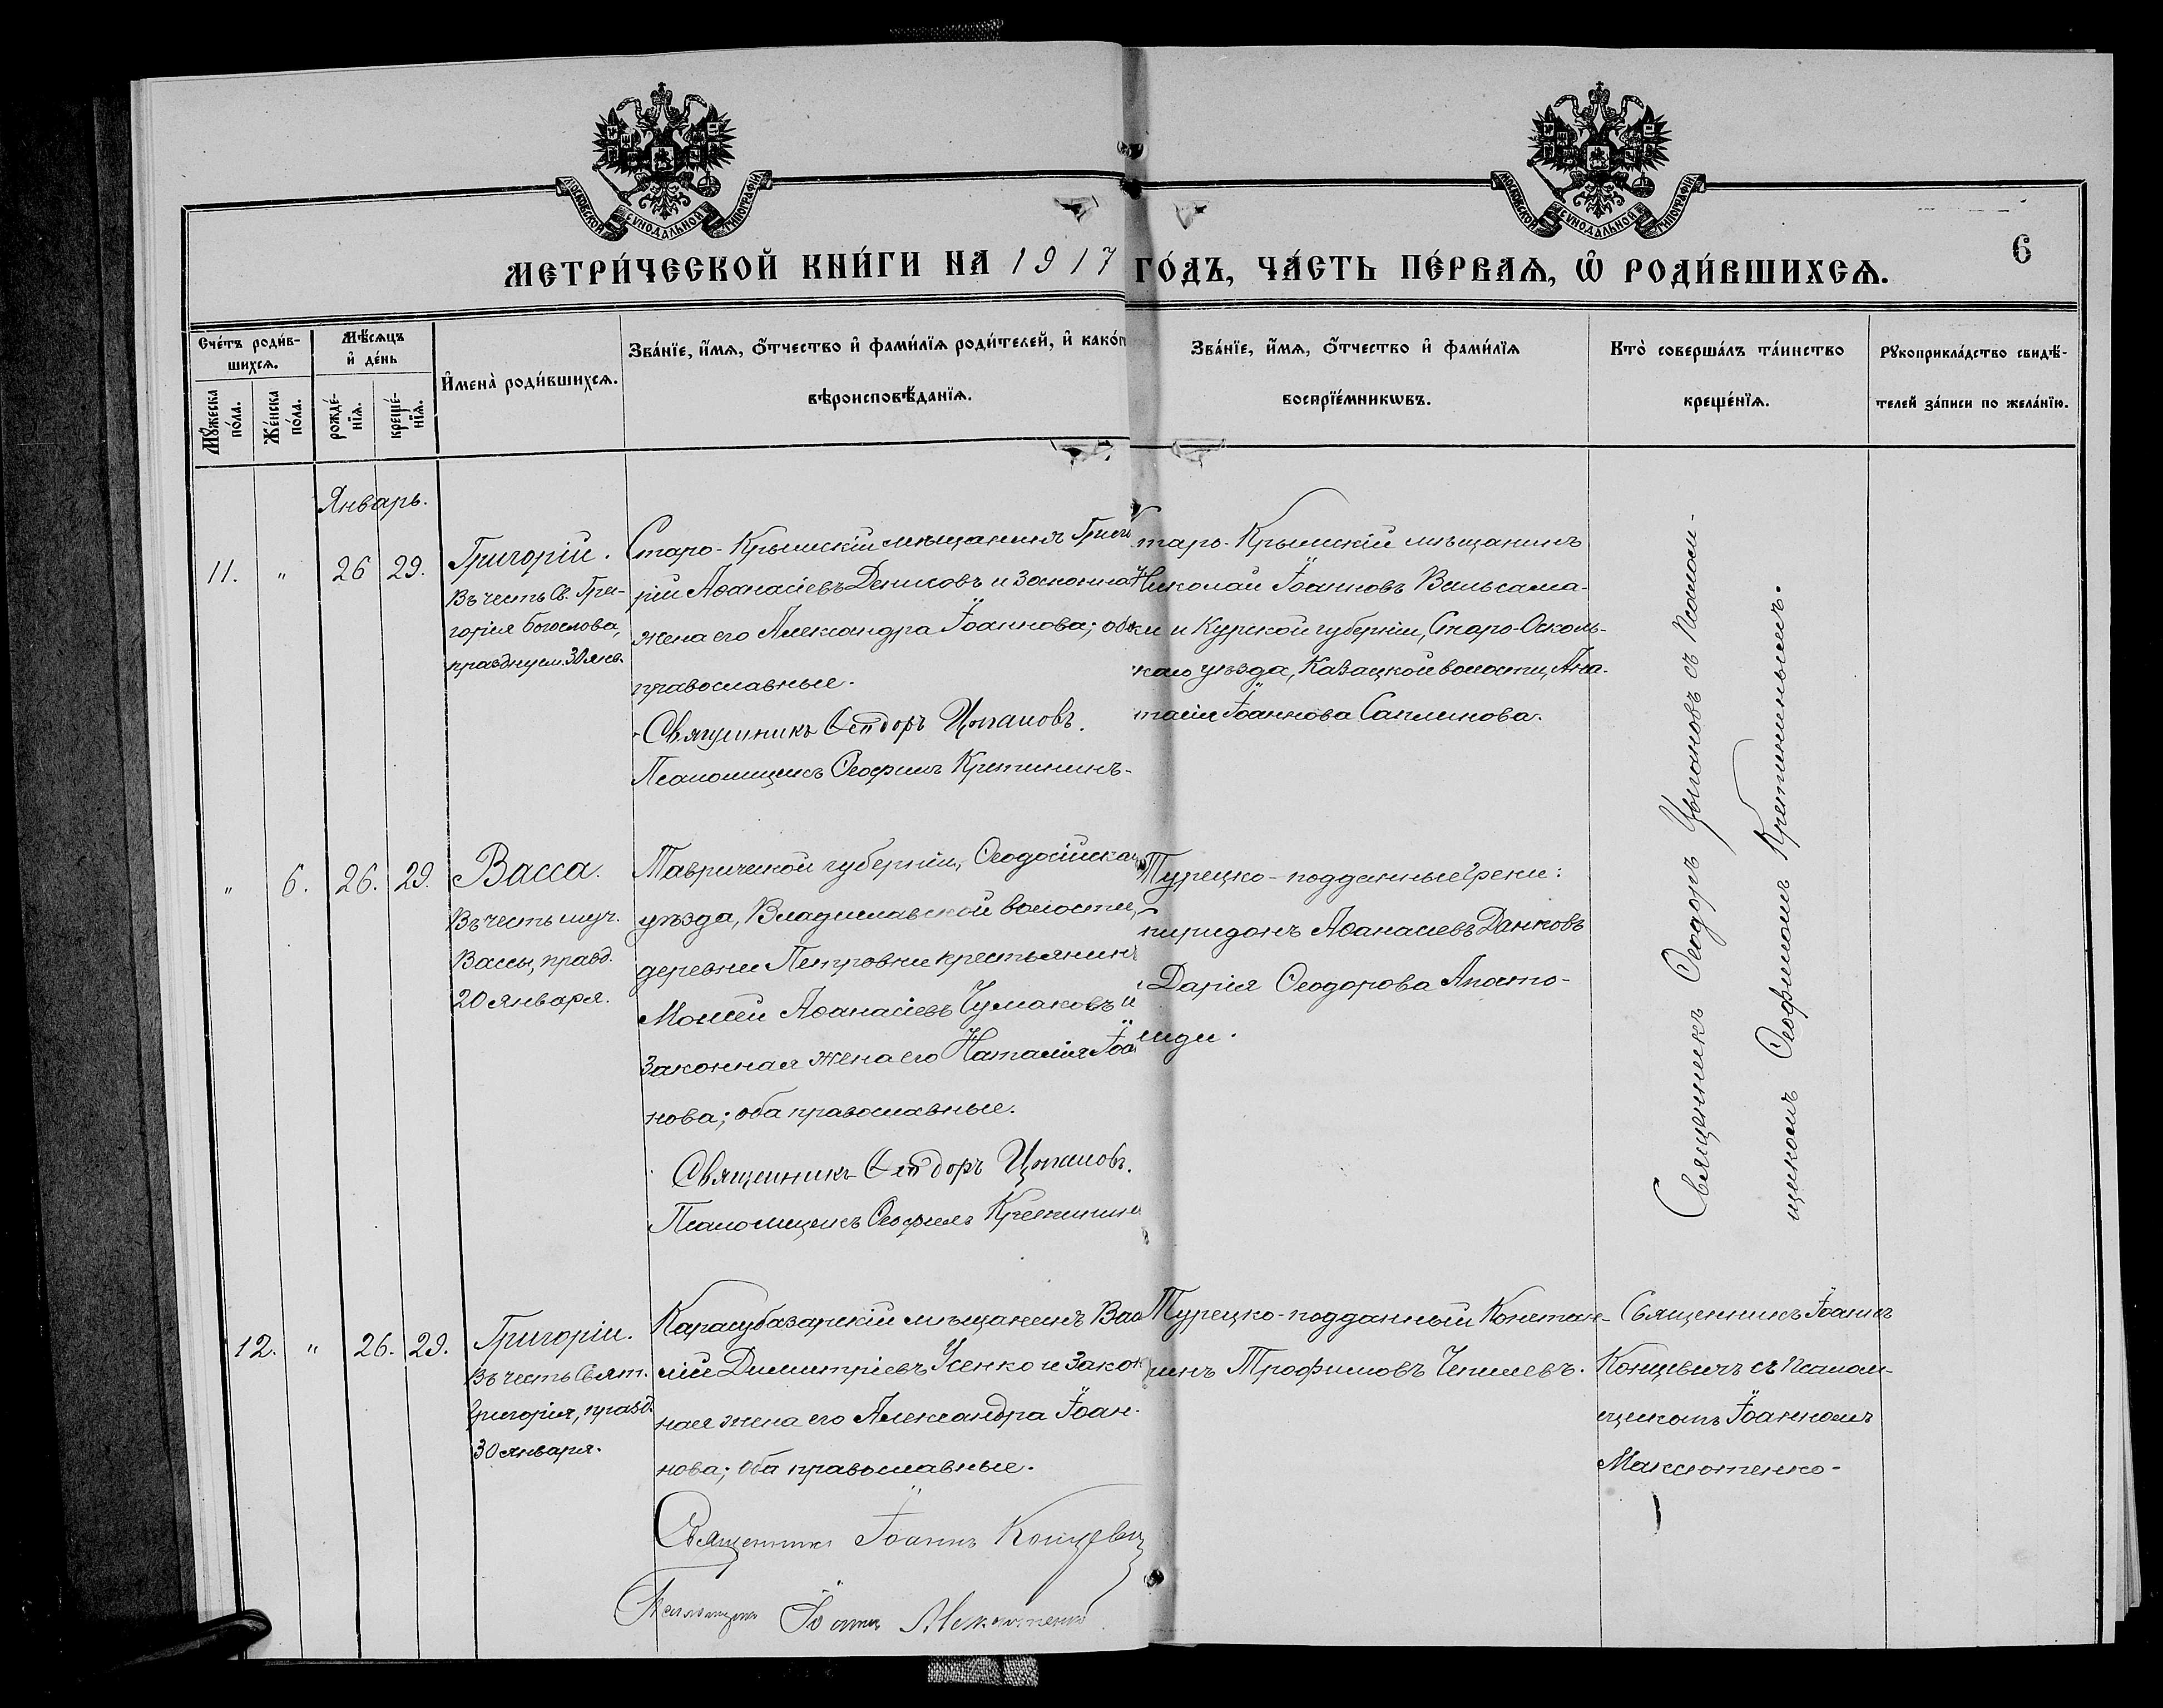 МОСКОВСКОЙ СѴНОДАЛЬНОЙ ТИПОГРАФІИ
МОСКОВСКОЙ СѴНОДАЛЬНОЙ ТИПОГРАФІИ
МЕТРИ́ЧЕСКОЙ КНИ́ГИ НА 1917 ГО́ДЪ, ЧА́СТЬ ПЕ́РВАѦ, Ѡ҆ РОДИ́ВШИХСѦ.
6
Сче́тъ роди́в-
шихсѧ.
Мꙋ́жеска
по́ла.
Же́нска
по́ла.
Мѣ́сѧцъ
и҆ де́нь
рожде́-
нїѧ.
креще́-
нїѧ.
И҆мена̀ роди́вшихсѧ.
Зва́нїе, и҆́мѧ, ѻ҆́тчество и҆ фами́лїѧ роди́телей, и҆ како́г
вѣроисповѣ́данїѧ.
Зва́нїе, и҆́мѧ, ѻ҆́тчество и҆ фами́лїѧ
воспрїе́мникѡвъ.
Кто̀ соверша́лъ та́инство
креще́нїѧ.
Рꙋкоприкла́дство свидѣ́-
телей за́писи по жела́нїю.
Январь.
11.
"
26
29.
Григорій.
Въ честь Св. Гри-
горія Богослова,
празднуем. 30 янв.
Старо-Крымскій мѣщанинъ Григо
рій Аѳанасіевъ Денисовъ и законная
жена его Александра Іоаннова; оба
православные.
Священникъ Ѳеодоръ Цыгановъ.
Псаломщикъ Ѳеофилъ Кретининъ.
таро-Крымскій мѣщанинъ
Николай Іоанновъ Вальсама-
ки и Курской губерніи, Старо-Осколь-
каго уѣзда, Казацкой волости, Ана-
тасія Іоаннова Саплинова.
Священникъ Ѳеодоръ Цыгановъ съ Псалом-
щикомъ Ѳеофиломъ Кретининымъ.
"
6.
26.
29.
Васса.
Въ честь муч.
Вассы, празд.
20 января.
Таврической губерніи, Ѳеодосійска
уѣзда, Владиславской волости,
деревни Петровки крестьянинъ
Моисей Аѳанасіевъ Чумаковъ и
законная жена его Наталія Іоа
нова; оба православные.
Священникъ Ѳеодоръ Цыгановъ.
Псаломщикъ Ѳеофилъ Кретинин
Турецко-подданные Греки:
пиридонъ Аѳанасіевъ Данковъ
и Дарія Ѳеодорова Апосто-
лиди.
12.
"
26.
29.
Григорій.
Въ честь Свят.
Григорія, празд.
30 января.
Карасубазарскій мѣщанинъ Васи
лій Димитріевъ Усенко и закон
ная жена его Александра Іоан-
нова; оба православные.
Священникъ Іоаннъ Концевич
Псаломщикъ Іоаннъ Максютенко
Турецко-подданный Констан-
тинъ Трофимовъ Чепиевъ.
Священникъ Іоаннъ
Концевичъ съ Псалом-
щикомъ Іоанномъ
Максютенко.